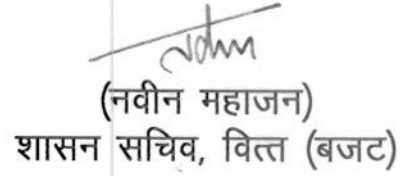 (नवीन महाजन)
शासन सचिव, वित्त (बजट)